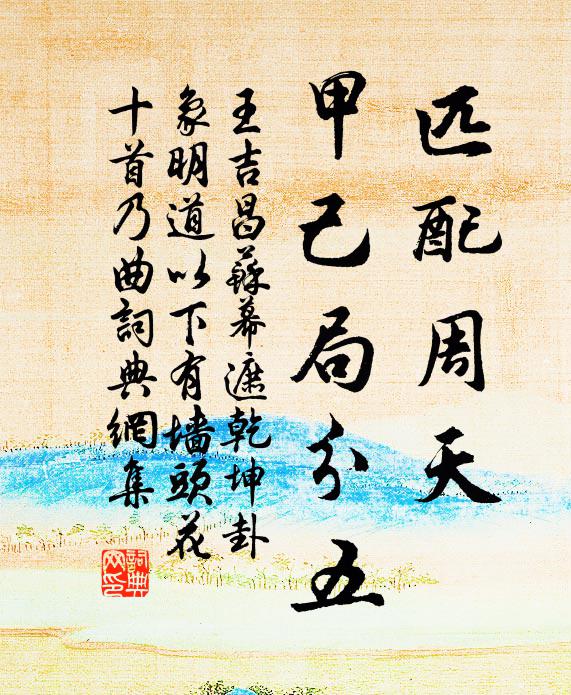 匹配周天
甲己局分五
王吉昌蘇幕遮乾坤卦
象明道以下有墻頭花
十首乃曲詞典網集
詞典
网印